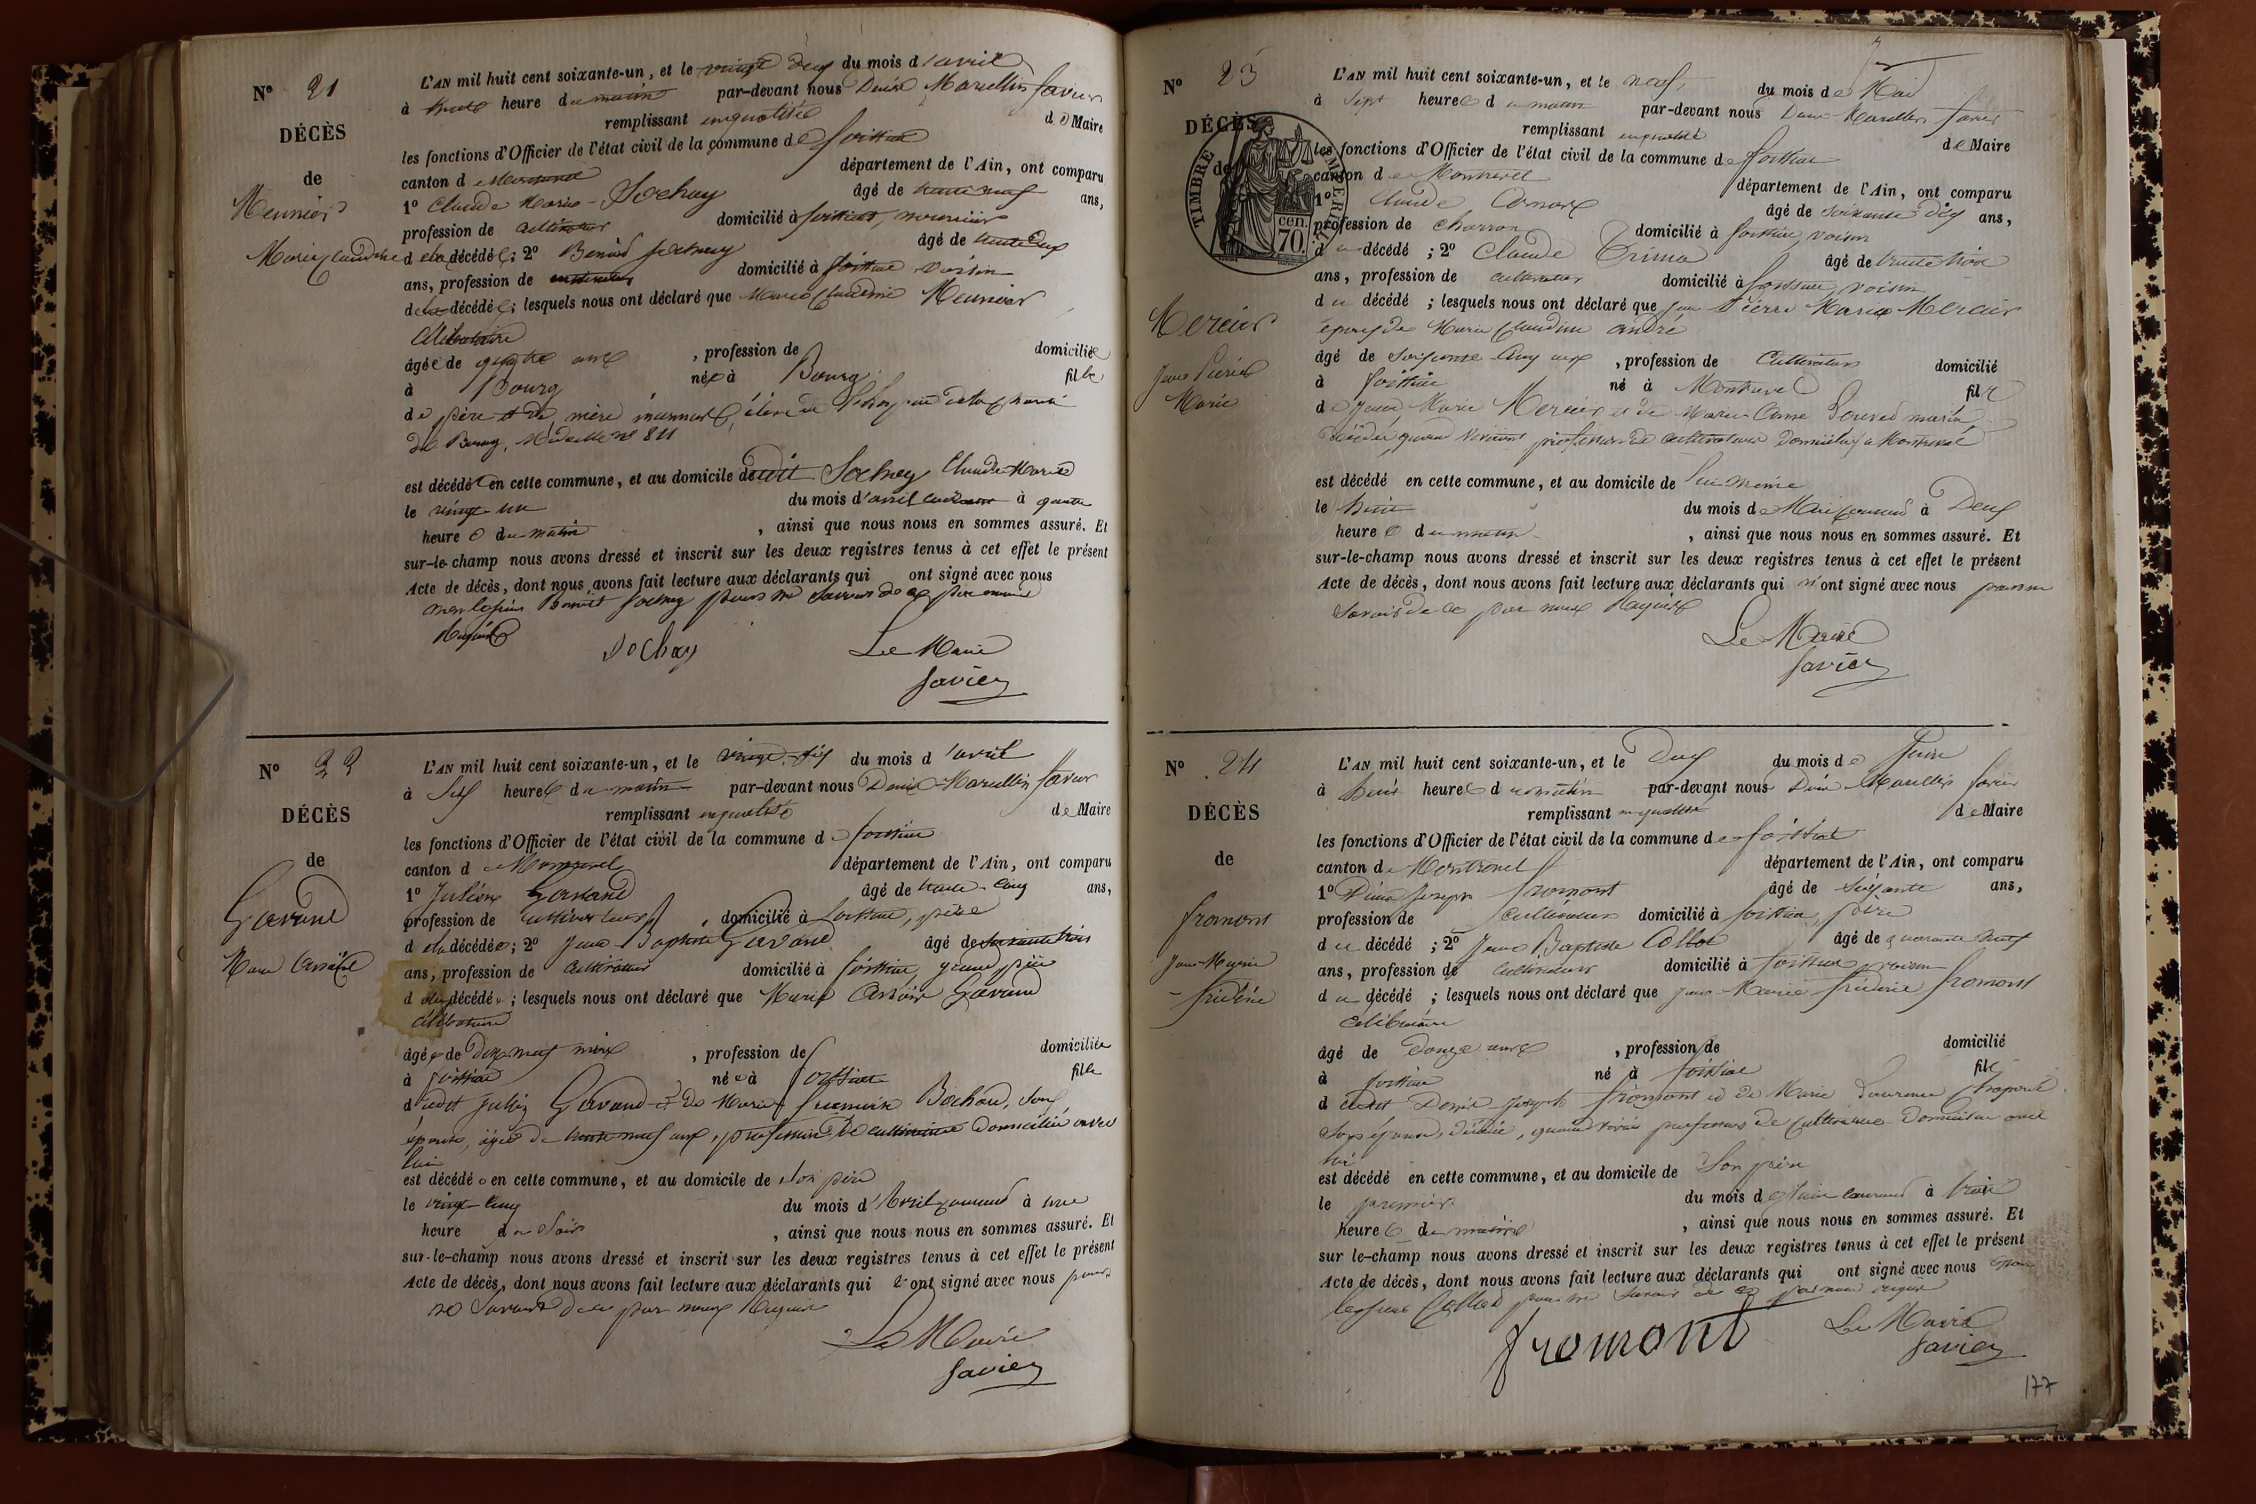 N° 21
DÉCÈS
de
Meunier
Marie Claudine
L'AN mil huit cent soixante-un, et le vingt deux du mois d'avril
à huit heure du matin par-devant nous Denis Marcellin Favier
remplissant en qualité de Maire
les fonctions d'Officier de l'état civil de la commune de Foissiat
canton de Montrevel département de l'Ain, ont comparu
1° Claude Marie Sochay âgé de trente neuf ans,
profession de cultivateur domicilié à Foissiat, nourricier
d décédée; 2° Benoit Sochay âgé de trente deux
ans, profession de domicilié à Foissiat voisin
de la décédée; lesquels nous ont déclaré que Marie Claudine Meunier
célibataire
âgée de quatre ans, profession de domiciliée
à Bourg née à Bourg fille
de père et de mère inconnus, élève de de la Charité
de Bourg, Médaille n° 811
est décédée en cette commune, et au domicile dudit Sochay Claude Marie
le vingt-un du mois d'avril courant à quatre
heures du matin, ainsi que nous nous en sommes assuré. Et
sur-le-champ nous avons dressé et inscrit sur les deux registres tenus à cet effet le présent
Acte de décès, dont nous avons fait lecture aux déclarants qui ont signé avec nous
Benoit Sochay pour ne savoir de ce
Requis
Sochay Le Maire
Favier
N° 22
DÉCÈS
de
Gavand
Marie
L'AN mil huit cent soixante-un, et le vingt-six du mois d'avril
à Six heures du matin par-devant nous Denis Marcellin Favier
remplissant en qualité de Maire
les fonctions d'Officier de l'état civil de la commune de Foissiat
canton de Montrevel département de l'Ain, ont comparu
1° Gavand âgé de trente-cinq ans,
profession de cultivateur, domicilié à Foissiat, père
de la décédée; 2° Jean-Baptiste Gavand âgé de soixante trois
ans, profession de cultivateur domicilié à Foissiat, grand père
de la décédée; lesquels nous ont déclaré que Marie Gavand
célibataire
âgée de Dix-neuf mois, profession de domiciliée
à Foissiat née à Foissiat fille
dudit Gavand et de Marie Bochard, son
épouse, âgée de trente neuf ans, profession de cultivatrice domiciliée avec
lui
est décédée en cette commune, et au domicile de son père
le vingt-cinq du mois d'Avril courant à une
heure du Soir, ainsi que nous nous en sommes assuré. Et
sur-le-champ nous avons dressé et inscrit sur les deux registres tenus à cet effet le présent
Acte de décès, dont nous avons fait lecture aux déclarants qui n'ont signé avec nous pour
ne Savoir de ce par nous Requis
Le Maire
Favier
N° 23
DÉCÈS
de
TIMBRE IMPERIAL
70 cen.
Mercier
Jean Pierre
Marie
L'AN mil huit cent soixante-un, et le neuf du mois de Mai
à Sept heures du matin par-devant nous Denis Marcellin Favier
remplissant en qualité de Maire
les fonctions d'Officier de l'état civil de la commune de Foissiat
canton de Montrevel département de l'Ain, ont comparu
1° Claude âgé de soixante dix ans,
profession de charron domicilié à Foissiat, voisin
du décédé; 2° Claude âgé de trente trois
ans, profession de cultivateur domicilié à Foissiat, voisin
du décédé; lesquels nous ont déclaré que Jean Pierre Marie Mercier
époux de Marie Claudine André
âgé de soixante cinq ans, profession de Cultivateur domicilié
à Foissiat né à Montrevel fils
de Jean Marie Mercier et de Marie-Anne
décédés, quand vivaient profession de cultivateurs Domiciliés à Montrevel
est décédé en cette commune, et au domicile de Lui même
le huit du mois de Mai courant à Deux
heures du matin, ainsi que nous nous en sommes assuré. Et
sur-le-champ nous avons dressé et inscrit sur les deux registres tenus à cet effet le présent
Acte de décès, dont nous avons fait lecture aux déclarants qui n'ont signé avec nous pour ne
Savoir de ce par nous Requis
Le Maire
Favier
N° 24
DÉCÈS
de
Fromont
Jean-Marie
Frédéric
L'AN mil huit cent soixante-un, et le Deux du mois de Juin
à huit heures du matin par-devant nous Denis Marcellin Favier
remplissant en qualité de Maire
les fonctions d'Officier de l'état civil de la commune de Foissiat
canton de Montrevel département de l'Ain, ont comparu
1° Denis Joseph Fromont âgé de soixante ans,
profession de cultivateur domicilié à Foissiat, père
du décédé; 2° Jean Baptiste Collet âgé de quarante neuf
ans, profession de cultivateur domicilié à Foissiat voisin
du décédé; lesquels nous ont déclaré que Jean-Marie Frédéric Fromont
célibataire
âgé de Douze ans, profession de domicilié
à Foissiat né à Foissiat fils
dudit Denis Joseph Fromont et de Marie
son épouse, décédée, quand vivait profession de Cultivatrice Domiciliée avec
lui
est décédé en cette commune, et au domicile de Son père
le premier du mois de Juin courant à trois
heures du matin, ainsi que nous nous en sommes assuré. Et
sur le-champ nous avons dressé et inscrit sur les deux registres tenus à cet effet le présent
Acte de décès, dont nous avons fait lecture aux déclarants qui ont signé avec nous
Collet pour ne Savoir de ce par nous requis
fromont Le Maire
Favier
177